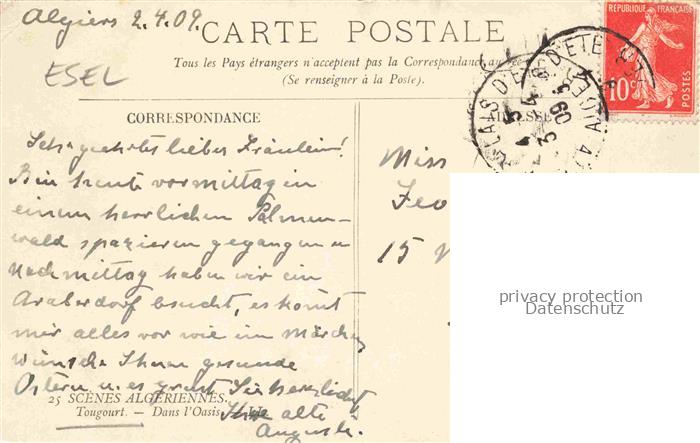 Algiers 2.4.09.
CARTE POSTALE
ESEL
Tous les Pays étrangers n'acceptent pas la Correspondance au
(Se renseigner à la Poste).
RÉPUBLIQUE FRANÇAISE
10c
POSTES
CORRESPONDANCE
ADRESSE
Sehr geehrtes liebes Fräulein!
Bin heute vormittag in
einem herrlichen Palmen-
wald spazieren gegangen u
Nachmittag haben wir ein
Araberdorf besucht, es komt
mir alles vor wie im Märchen
wünsche Ihnen gesunde
Ostern u. es grüsst Sie herzlichst
Ihre alte
Auguste.
25 SCÈNES ALGÉRIENNES.
Tougourt. — Dans l'Oasis.
Miss
15
privacy protection
Datenschutz